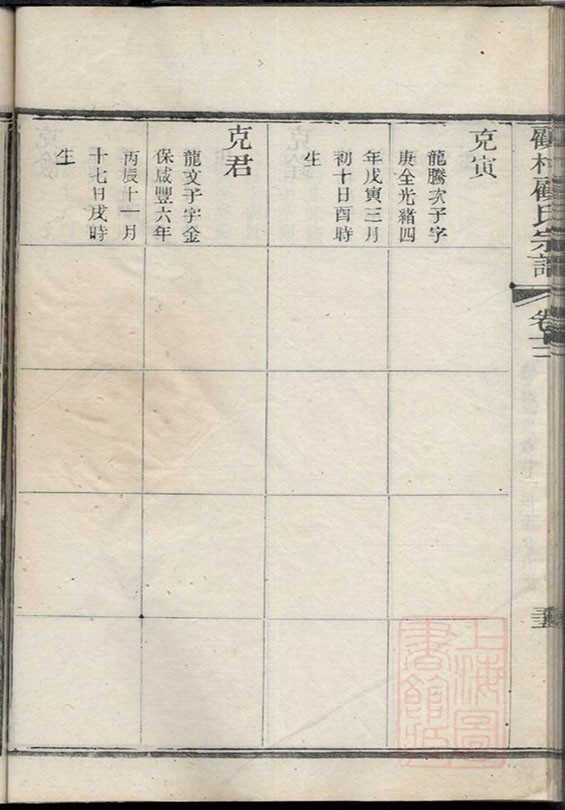 顧村顧氏宗譜
卷十三
克寅
龍騰次子字
庚全光緒四
年戊寅三月
初十日酉時
生
克君
龍文子字金
保咸豐六年
丙辰十一月
十七日戌時
生
上海圖
書館藏